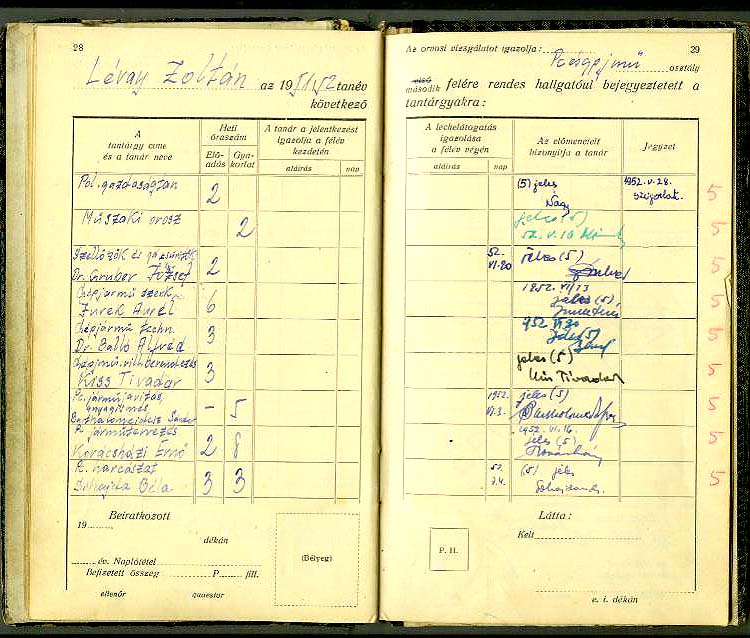 28
Lévay Zoltán az 1951/52 tanév
következő
A
tantárgy címe
és a tanár neve
Heti
óraszám
Elő-
adás
Gya-
korlat
A tanár a jelentkezést
igazolja a félév
kezdetén
aláírás
nap
Pol. gazdaságtan
2
Műszaki orosz
2
Szellőzők és
Dr. Gruber József
2
Gépjármű szerk.
Zurek Aurél
6
Gépjármű techn.
Dr. Balló Alfréd
3
Gépjármű vill. berendezés
Kiss Tivadar
3
Pc. járműjavítás,
anyagism.
Bartholomeidesz Sándor
-
5
P. járműtervezés
Kovácsházi Ernő
2
8
P. harcászat
Béla
3
3
Beiratkozott
19
dékán
év. Naplótétel
Befizetett összeg
P.
fill.
(Bélyeg)
ellenőr
quaestor
29
Az orvosi vizsgálatot igazolja:
osztály
első
második felére rendes hallgatóul bejegyeztetett a
tantárgyakra:
A leckelátogatás
igazolása
a félév végén
Az előmenetelt
bizonyítja a tanár
Jegyzet
aláírás
nap
(5) jeles
Nagy
1952. V. 28.
szigorlat.
5
jeles (5)
52. V. 16
5
52.
VI. 20
jeles (5)
5
1952. VI/13
jeles (5).
5
952 VI 30
jeles (5)
5
jeles (5)
Kiss Tivadar
5
1952.
VI. 3.
jeles (5)
5
1952. VI. 16.
jeles (5)
5
52.
(5) jeles
5
Látta:
Kelt
P. H.
e. i. dékán